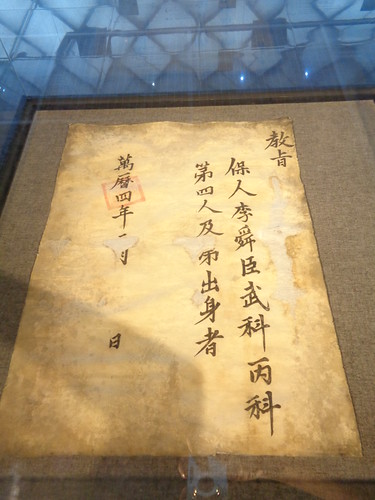 教旨
保人李舜臣武科丙科
第四人及第出身者
萬曆四年一月 日